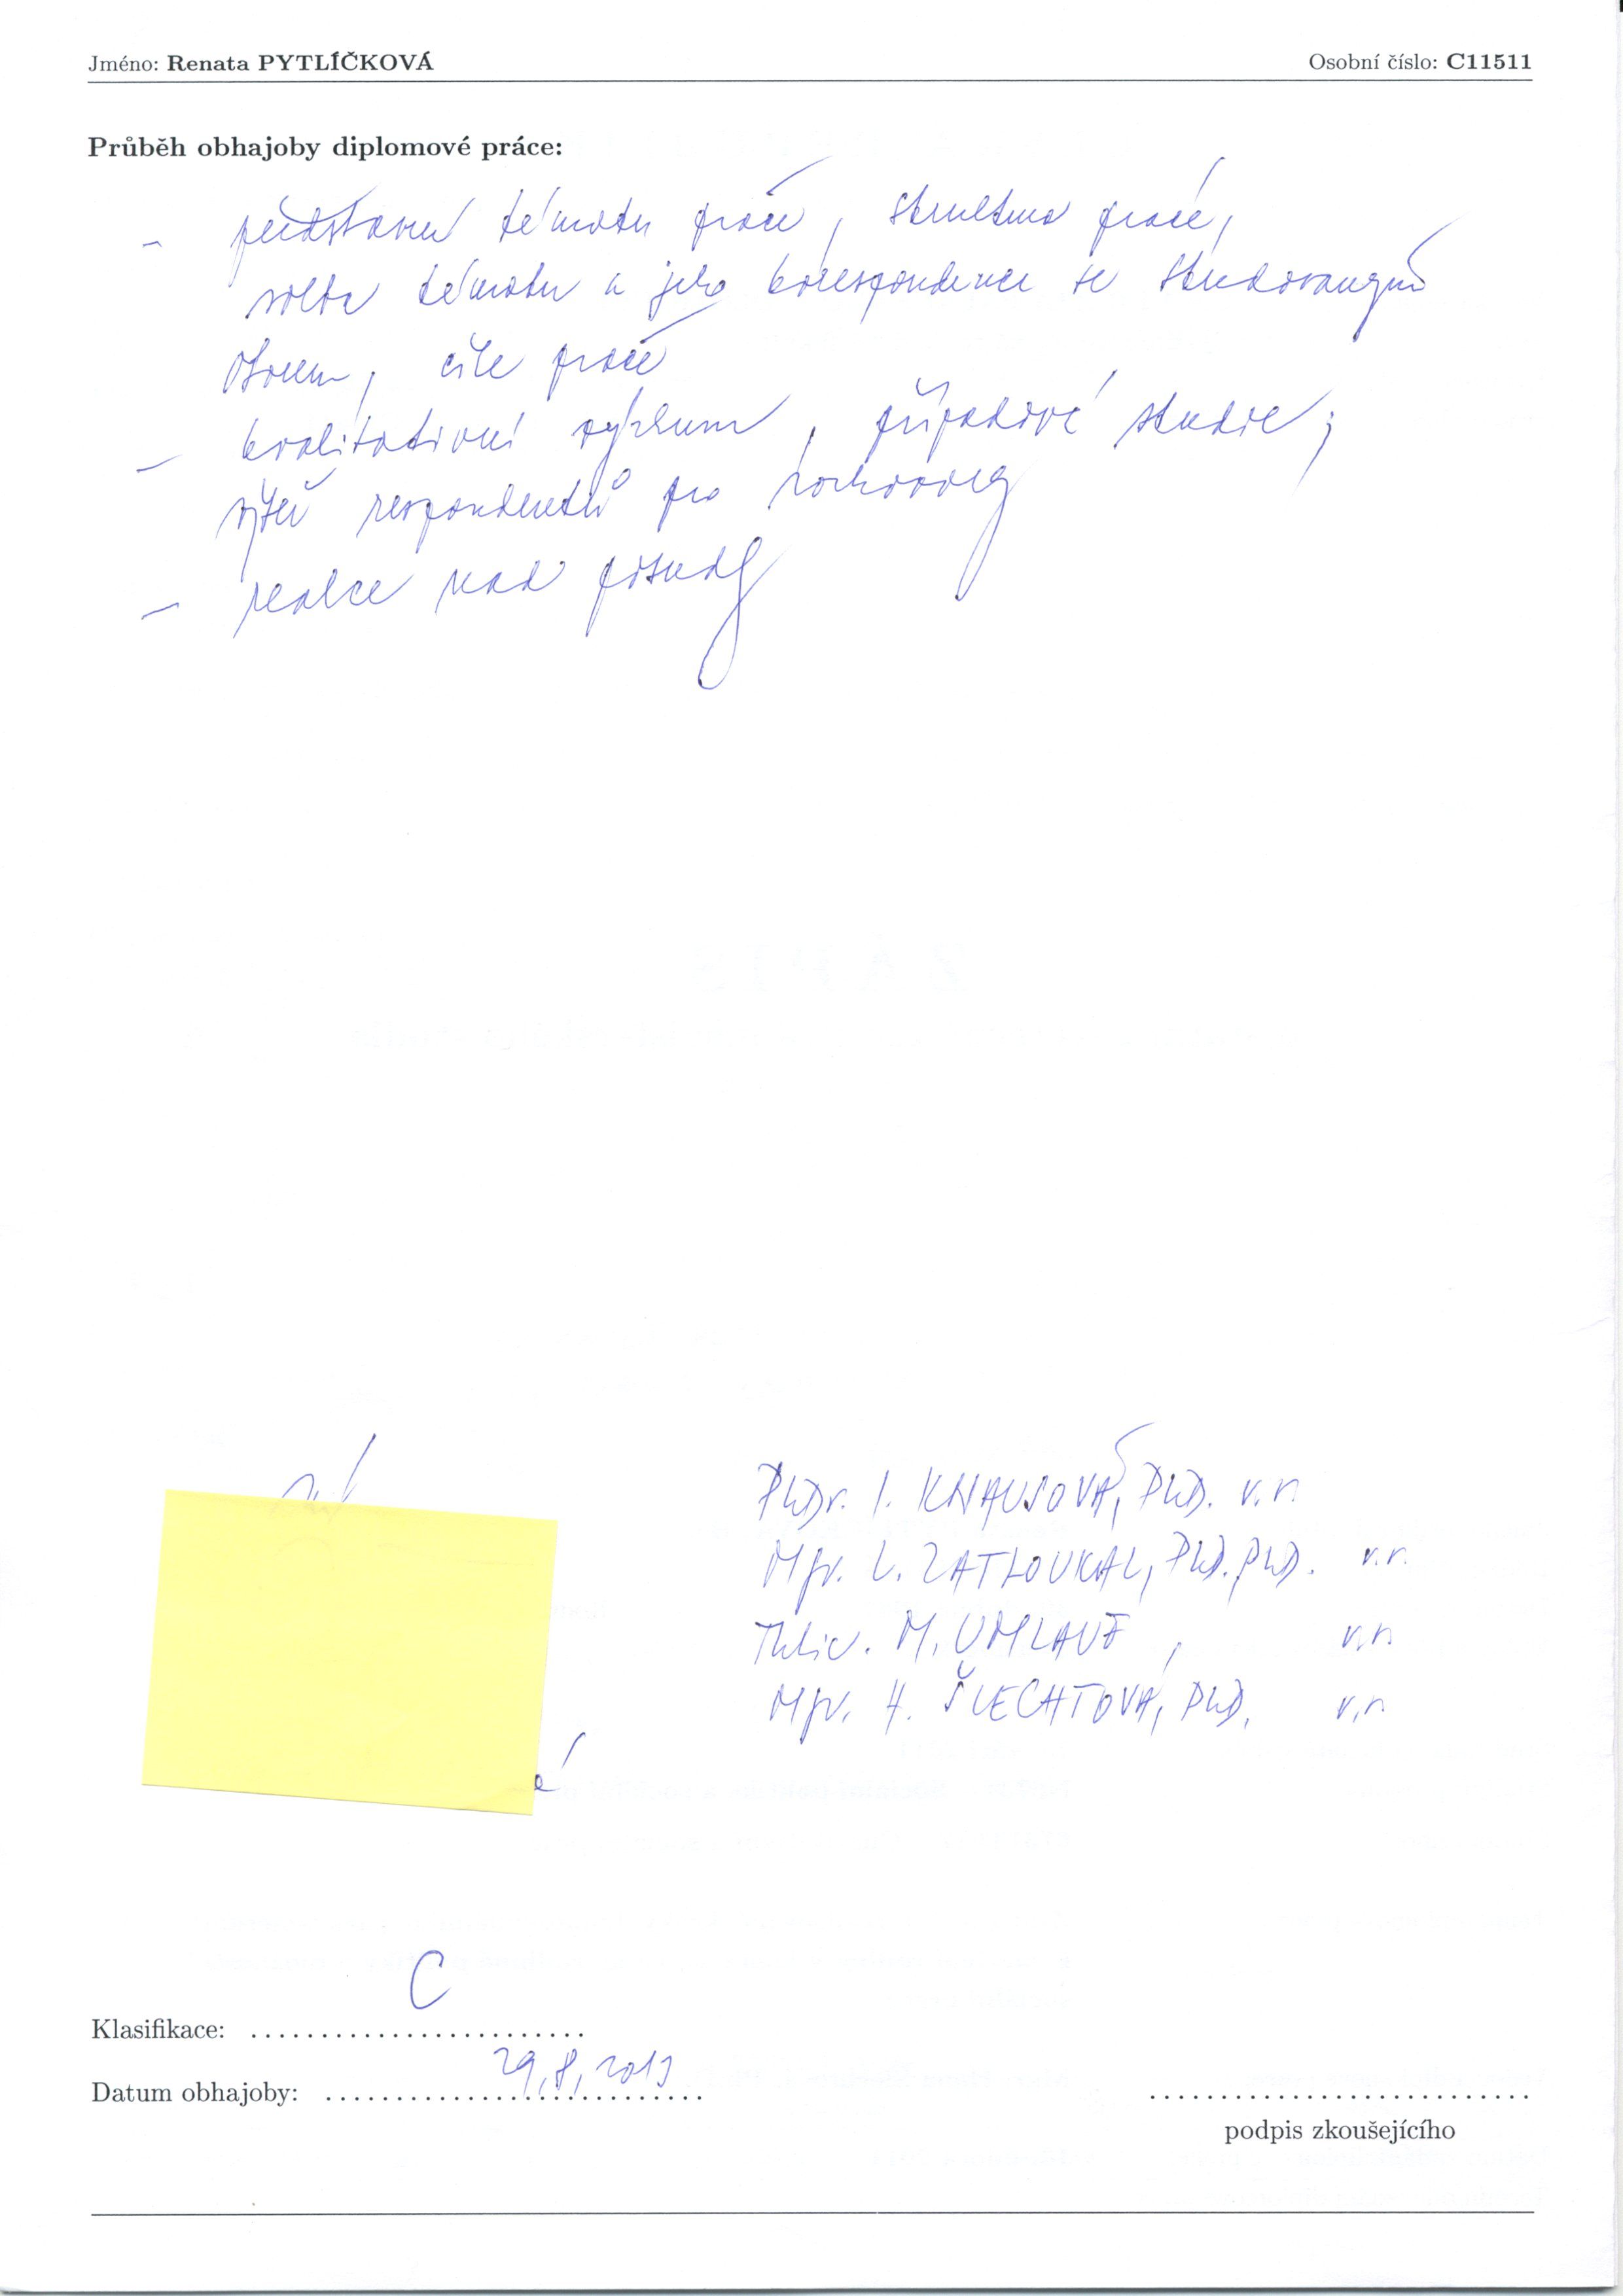 Jméno: Renata PYTLÍČKOVÁ Osobní číslo: C11511
Průběh obhajoby diplomové práce:
- představení tématu práce, struktura práce,
volba tématu a jeho korespondence se studovaným
oborem, cíle práce
- kvalitativní výzkum, případové studie;
výběr respondentů pro rozhovory
- reakce nad posudky
PhDr. I. KNAUSOVÁ, PhD. v.r.
Mgr. L. ZATLOUKAL, PhD. PhD. v.r.
ThLic. M. UMLAUF, v.r.
Mgr. H. ŠLECHTOVÁ, PhD. v.r.
C
Klasifikace:
Datum obhajoby: 29.8.2013
podpis zkoušejícího